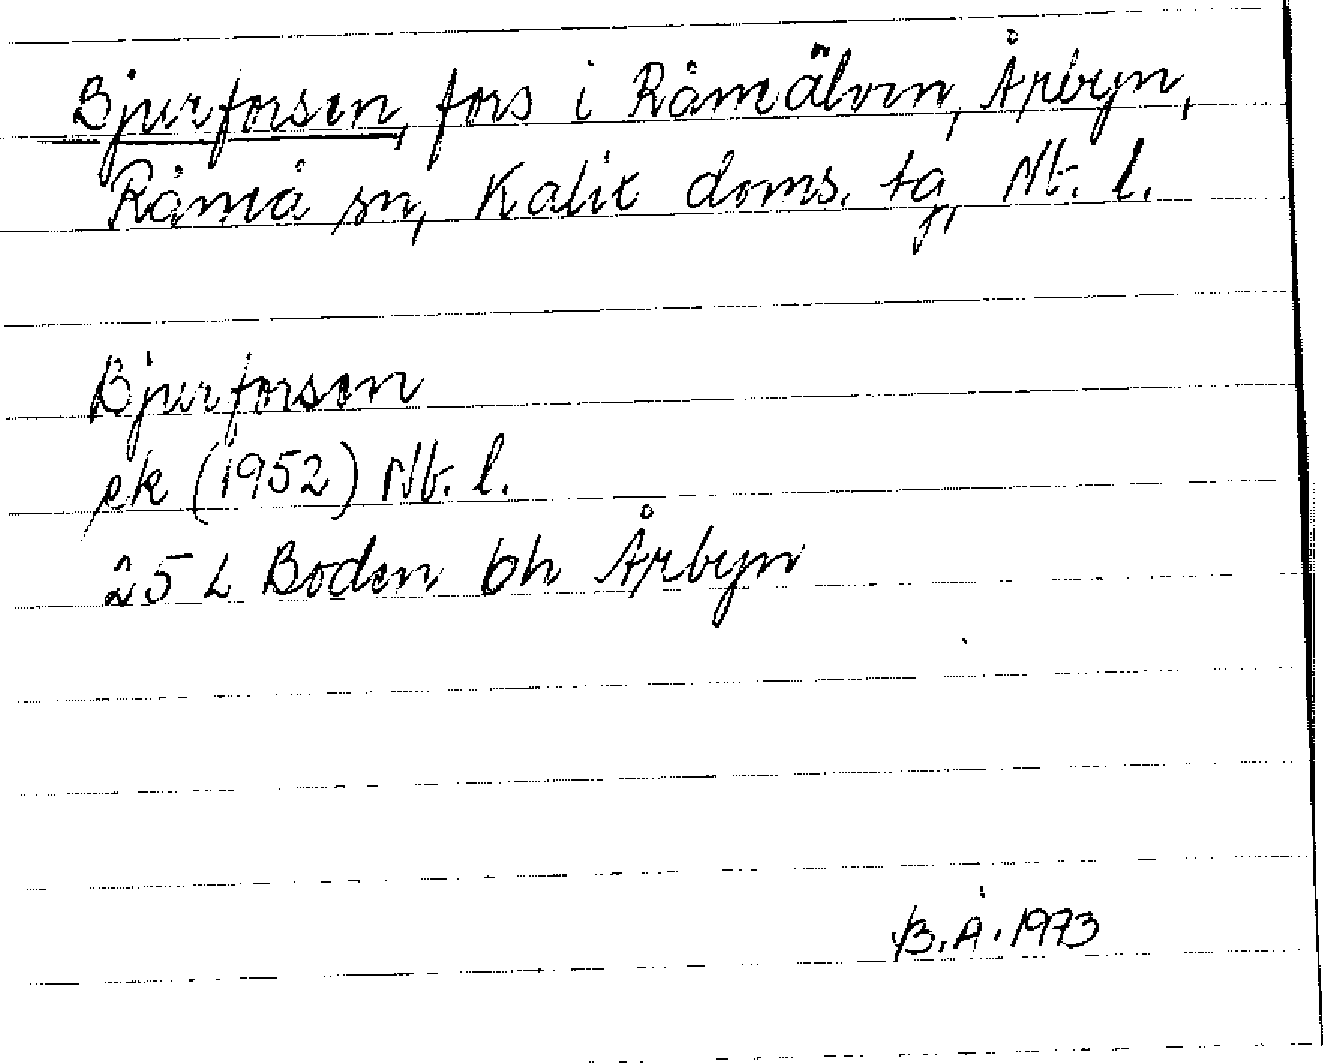 Bjurforsen, fors i Råneälven, Årbyn,
Råneå sn, Kalix doms. tg, Nb. l.
Bjurforsen
ek (1952) Nb. l.
25 L Boden 6h Årbyn
B.Å. 1973